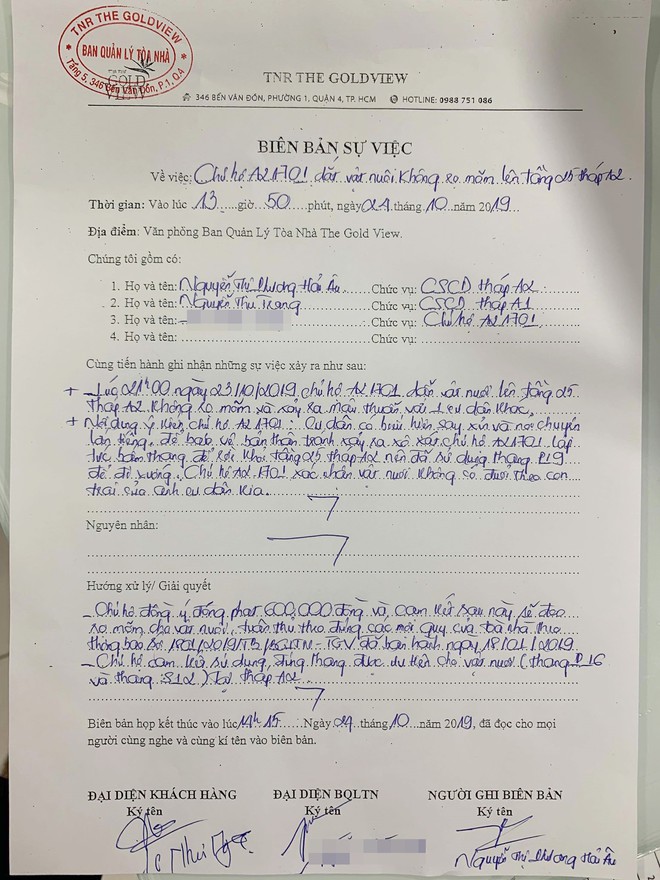 TNR THE GOLDVIEW
BAN QUẢN LÝ TÒA NHÀ
TNR THE
GOLD
VIEW
Tầng 5, 346 Bến Vân Đồn, P.1, Q.4
TNR THE GOLDVIEW
346 BẾN VÂN ĐỒN, PHƯỜNG 1, QUẬN 4, TP. HCM HOTLINE: 0988 751 086
BIÊN BẢN SỰ VIỆC
Về việc: Chủ hộ A2 1701 dắt vật nuôi không rọ mõm lên tầng 25 tháp A2.
Thời gian: Vào lúc 13 giờ 50 phút, ngày 24 tháng 10 năm 2019
Địa điểm: Văn phòng Ban Quản Lý Tòa Nhà The Gold View.
Chúng tôi gồm có:
1. Họ và tên: Nguyễn Thị Phương Hải Âu Chức vụ: CSCD tháp A2
2. Họ và tên: Nguyễn Thu Trang Chức vụ: CSCD tháp A1
3. Họ và tên: Chức vụ: Chủ hộ A2 1701
4. Họ và tên: Chức vụ:
Cùng tiến hành ghi nhận những sự việc xảy ra như sau:
+ Lúc 21h00 ngày 23/10/2019, chủ hộ A2 1701 dắt vật nuôi lên tầng 25
tháp A2 không rọ mõm và xảy ra mâu thuẫn với 1 cư dân khác.
+ Nội dung ý kiến chủ hộ A2 1701: Cư dân có biểu hiện say xỉn và nói chuyện
lớn tiếng, để bảo vệ bản thân tránh xảy ra xô xát chủ hộ A2 1701 lập
tức bấm thang để rời khỏi tầng 25 tháp A2 nên đã sử dụng thang P19
để đi xuống. Chủ hộ A2 1701 xác nhận vật nuôi không có đuổi theo con
trai của anh cư dân kia.
Nguyên nhân:
Hướng xử lý/ Giải quyết
- Chủ hộ đồng ý đóng phạt 600,000 đồng và cam kết sau này sẽ đeo
rọ mõm cho vật nuôi, tuân thủ theo đúng các nội quy của toà nhà theo
thông báo số 1801/2019/TB/BQLTN-TGV đã ban hành ngày 18/01/2019.
- Chủ hộ cam kết sử dụng đúng thang được ưu tiên cho vật nuôi (thang P16
và thang S12) tại tháp A2.
Biên bản họp kết thúc vào lúc 14h15 Ngày 24 tháng 10 năm 2019, đã đọc cho mọi
người cùng nghe và cùng kí tên vào biên bản.
ĐẠI DIỆN KHÁCH HÀNG ĐẠI DIỆN BQLTN NGƯỜI GHI BIÊN BẢN
Ký tên Ký tên Ký tên
Nguyễn Thị Phương Hải Âu